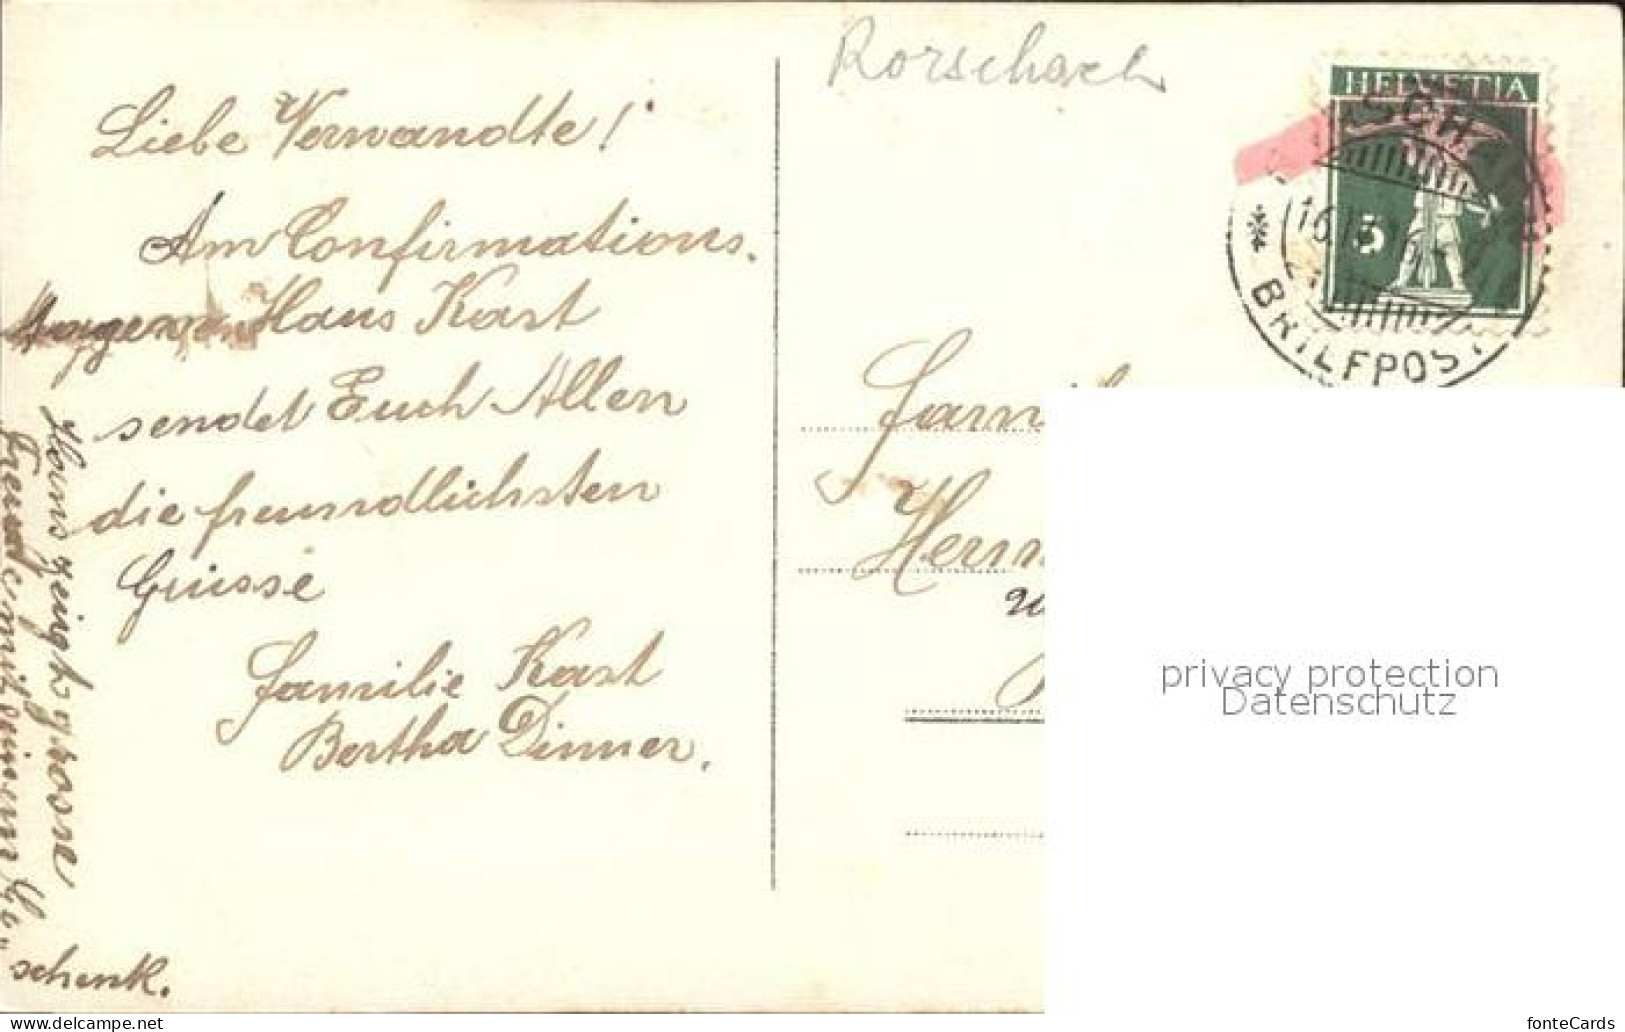 Rorschach
HELVETIA
5
SCH
16
BRIEFPOST
Liebe Verwandte!
Am Confirmations.
Morgen v. Hans Kast
sendet Euch Allen
die freundlichsten
Grüsse
Familie Kast
Bertha Dinner.
Hans zeigt grosse
Freude mit seinem Ge„
schenk.
Fami
Herm
privacy protection
Datenschutz
www.delcampe.net
fonteCards